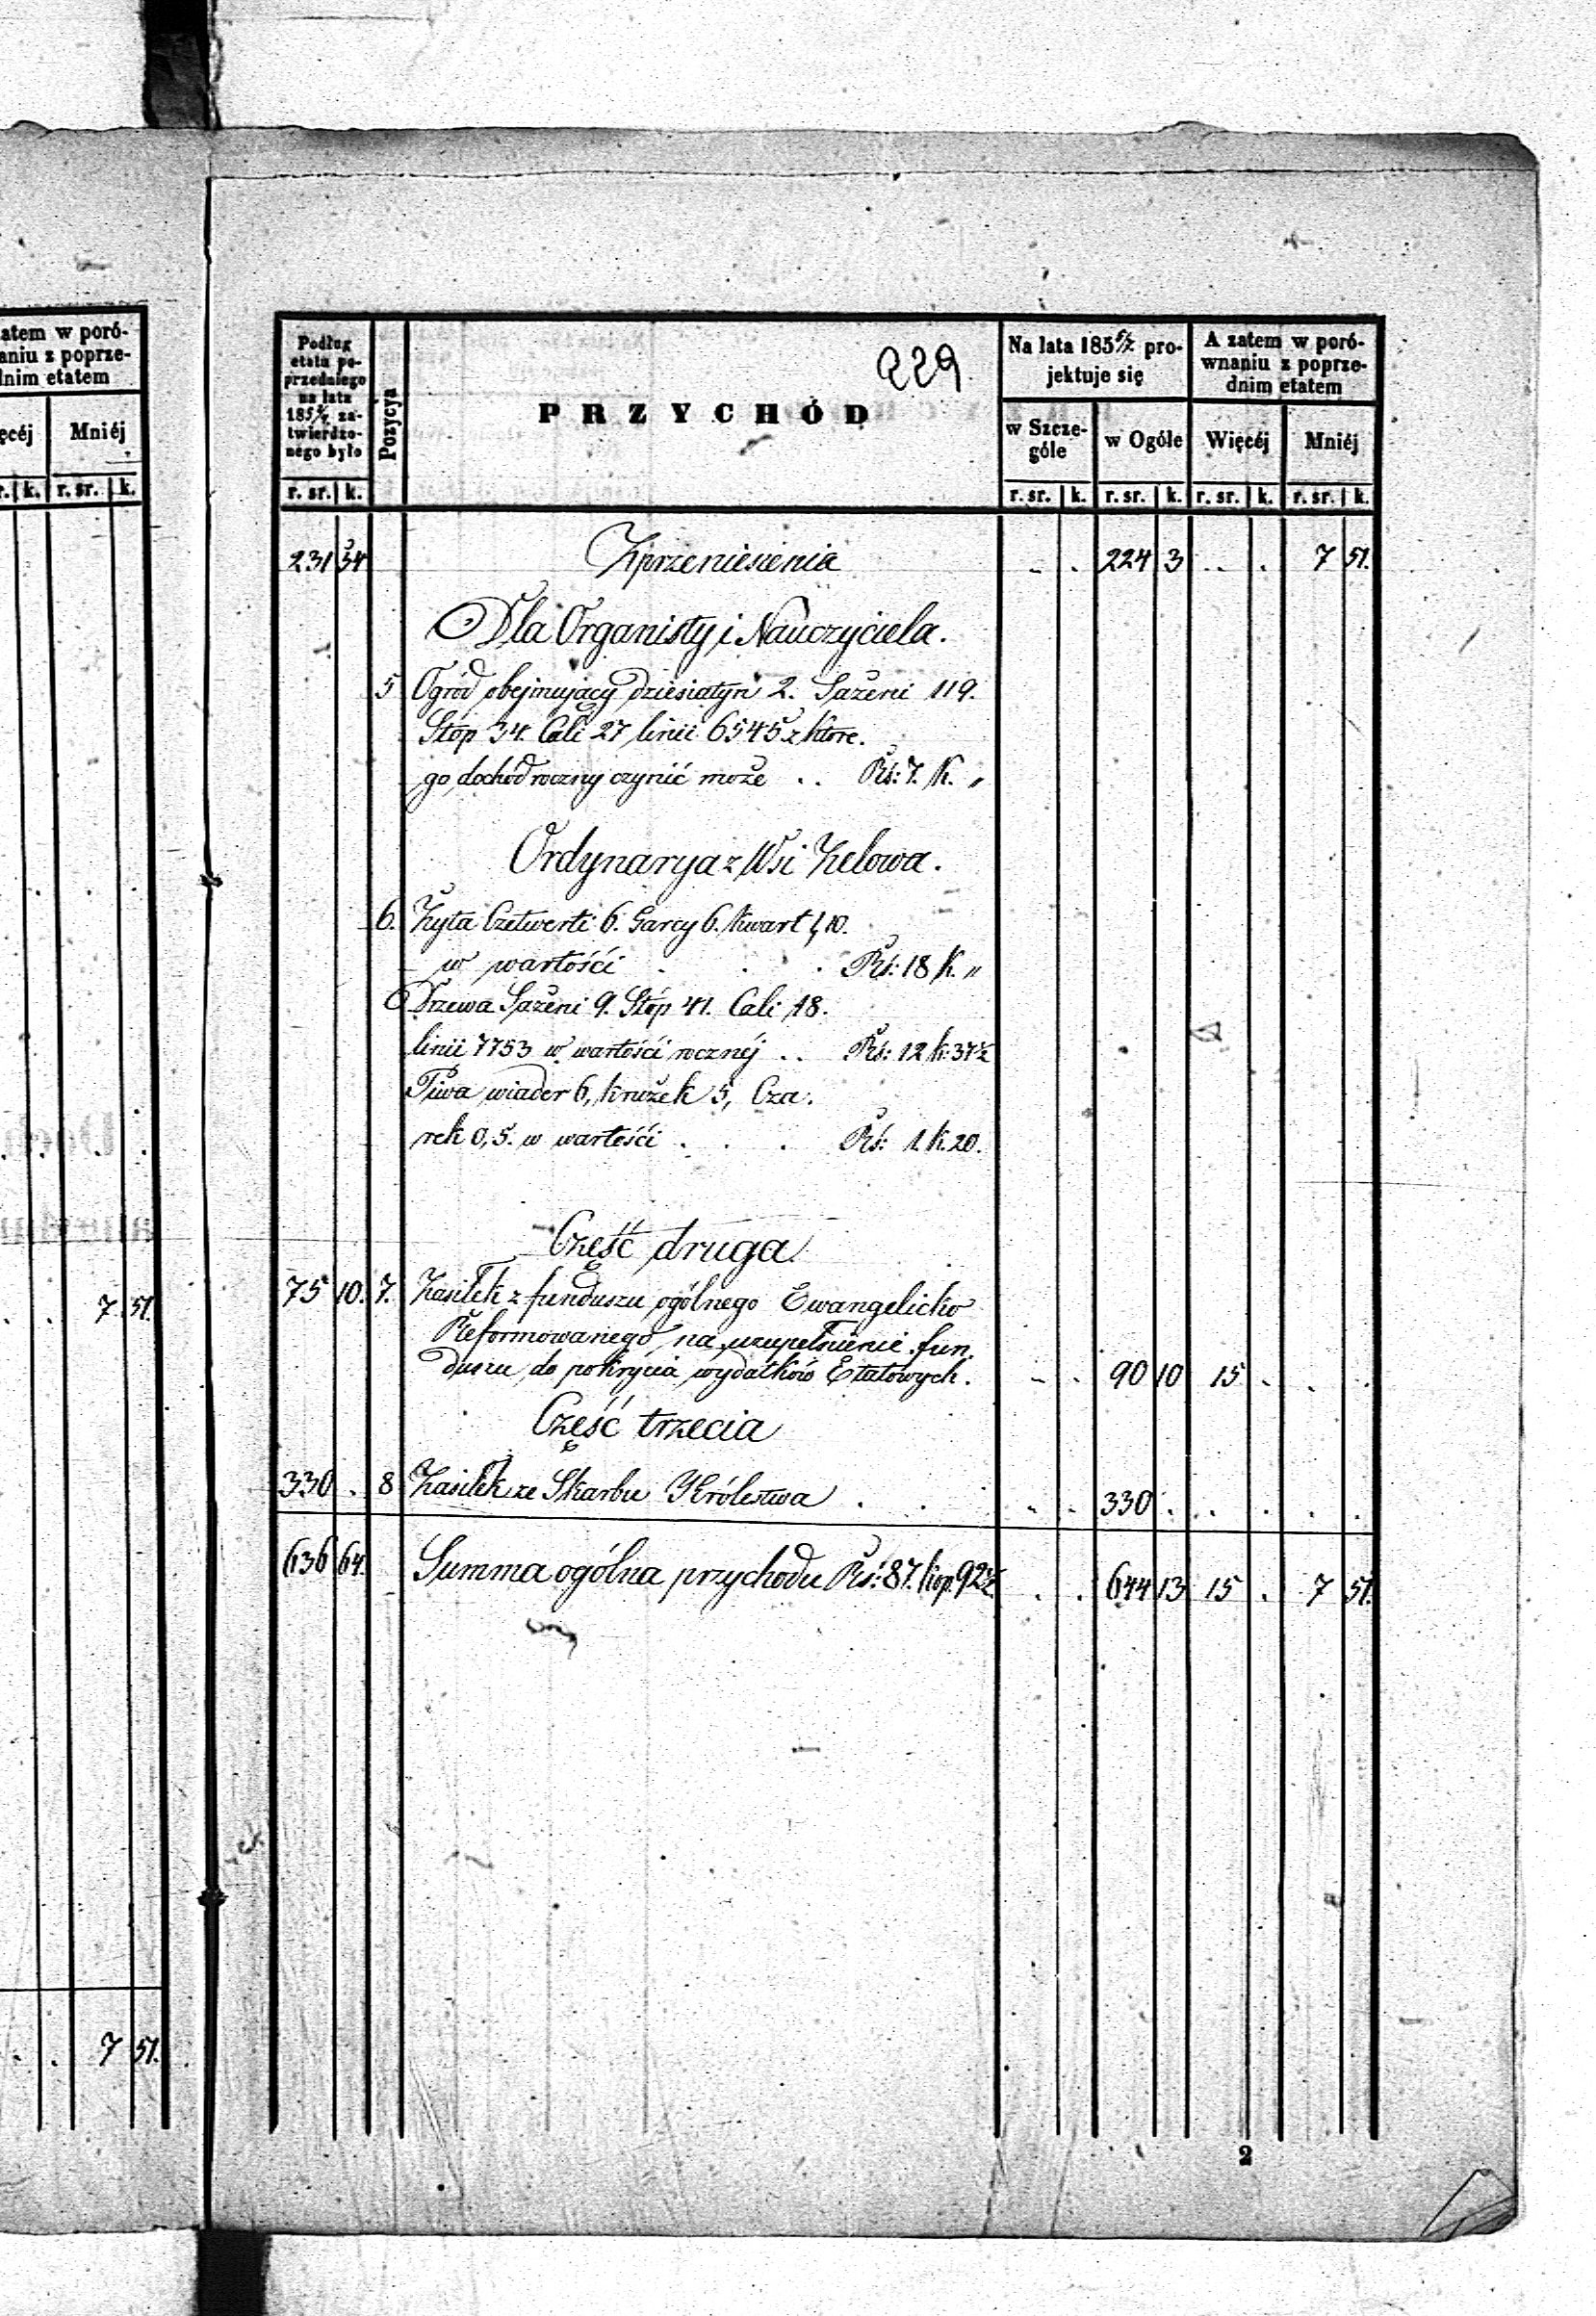 atem w poró-
aniu z poprze-
dnim etatem
ęcéj Mniéj
r. k. r. sr. k.
7 51.
7 51.
229
Podług
etatu po-
przedniego
na lata
185 za-
twierdzo-
nego było
Pozycya
PRZYCHÓD
Na lata 185 pro-
jektuje się
A zatem w poró-
wnaniu z poprze-
dnim etatem
w Szcze-
góle
w Ogóle Więcéj Mniéj
r. sr. k. r. sr. k. r. sr. k. r. sr. k. r. sr. k.
231 54 Z przeniesienia 224 3 7 51.
Dla Organisty i Nauczyciela.
5 Ogród obejmujący dziesiatyn 2. Sażeni 119.
Stóp 34. Cali 27 linii 6545 z które.
go dochód roczny czynić może . . Rs: 7. K. „
Ordynarya z Wsi Zelowa.
6. Żyta Czetwerti 6. Garcy 6. Kwart 1,10.
w wartości . . . Rs: 18 K. „
Drzewa Sażeni 9. Stóp 41. Cali 18.
linii 7753 w wartości rocznéj . . Rs: 12 k: 37½
Piwa wiader 6, krużek 5, Cza.
rek 0,5. w wartości . . . Rs: 1. K. 20.
Część druga
75 10. 7. Zasiłek z funduszu ogólnego Ewangelicko
Reformowanego na uzupełnienie fun.
duszu do pokrycia wydatków Etatowych. 90 10 15
Część trzecia
330 . 8 Zasiłek ze Skarbu Królestwa . . 330
636 64. Summa ogólna przychodu Rs: 87. Kop. 92½ 644 13 15 . 7 51.
2